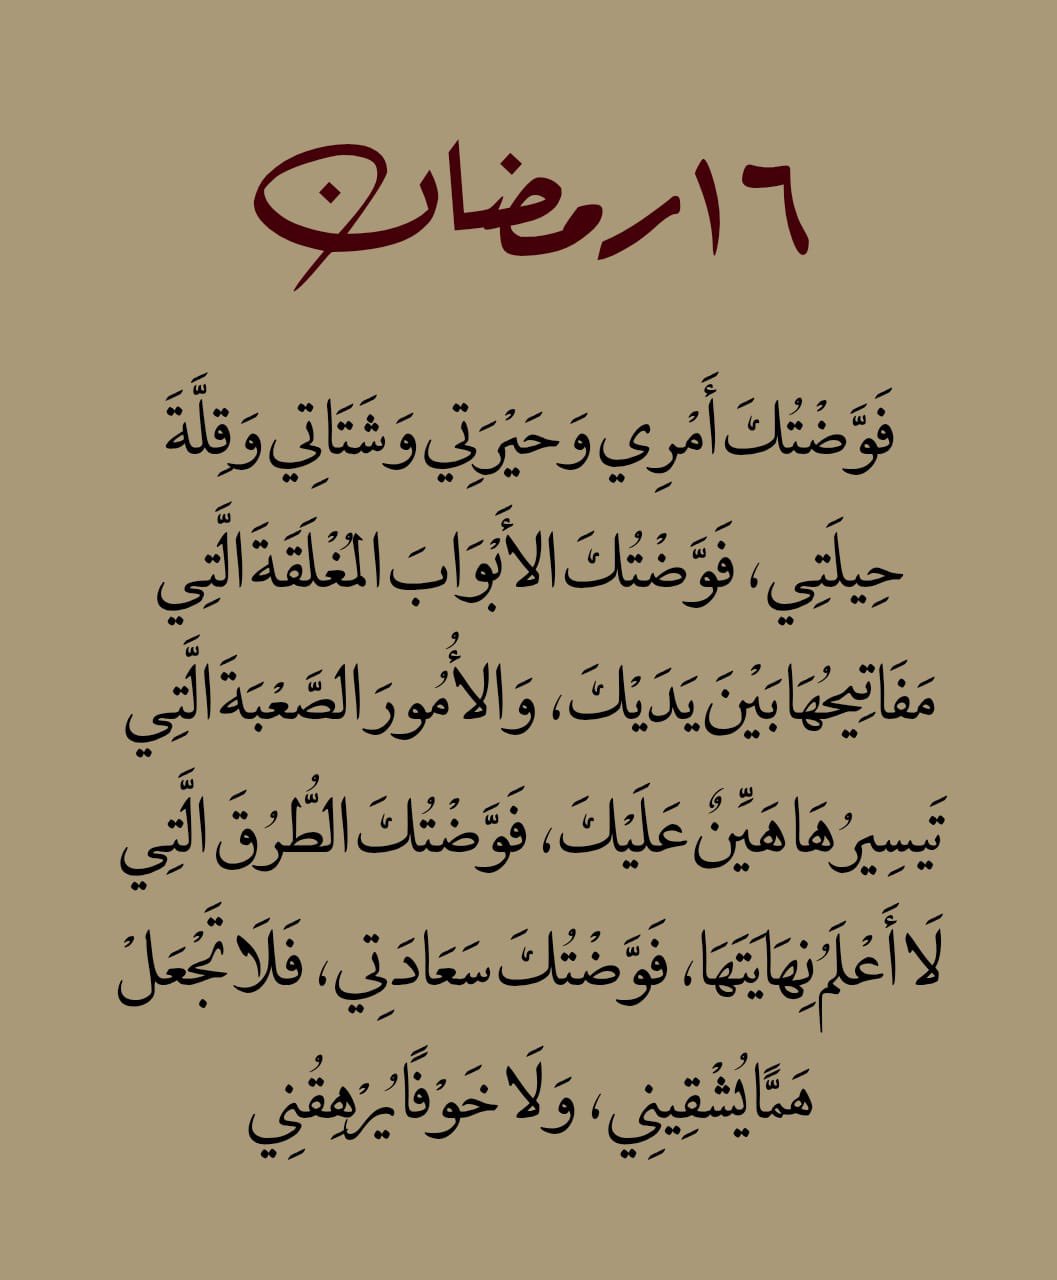 ١٦ رمضان
فَوَّضْتُكَ أَمْرِي وَحَيْرَتِي وَشَتَاتِي وَقِلَّةَ
حِيلَتِي، فَوَّضْتُكَ الأَبْوَابَ المُغْلَقَةَ الَّتِي
مَفَاتِيحُهَا بَيْنَ يَدَيْكَ، وَالأُمُورَ الصَّعْبَةَ الَّتِي
تَيسِيرُهَا هَيِّنٌ عَلَيْكَ، فَوَّضْتُكَ الطُّرُقَ الَّتِي
لَا أَعْلَمُ نِهَايَتَهَا، فَوَّضْتُكَ سَعَادَتِي، فَلَا تَجْعَلْ
هَمًّا يُشْقِينِي، وَلَا خَوْفًا يُرْهِقُنِي